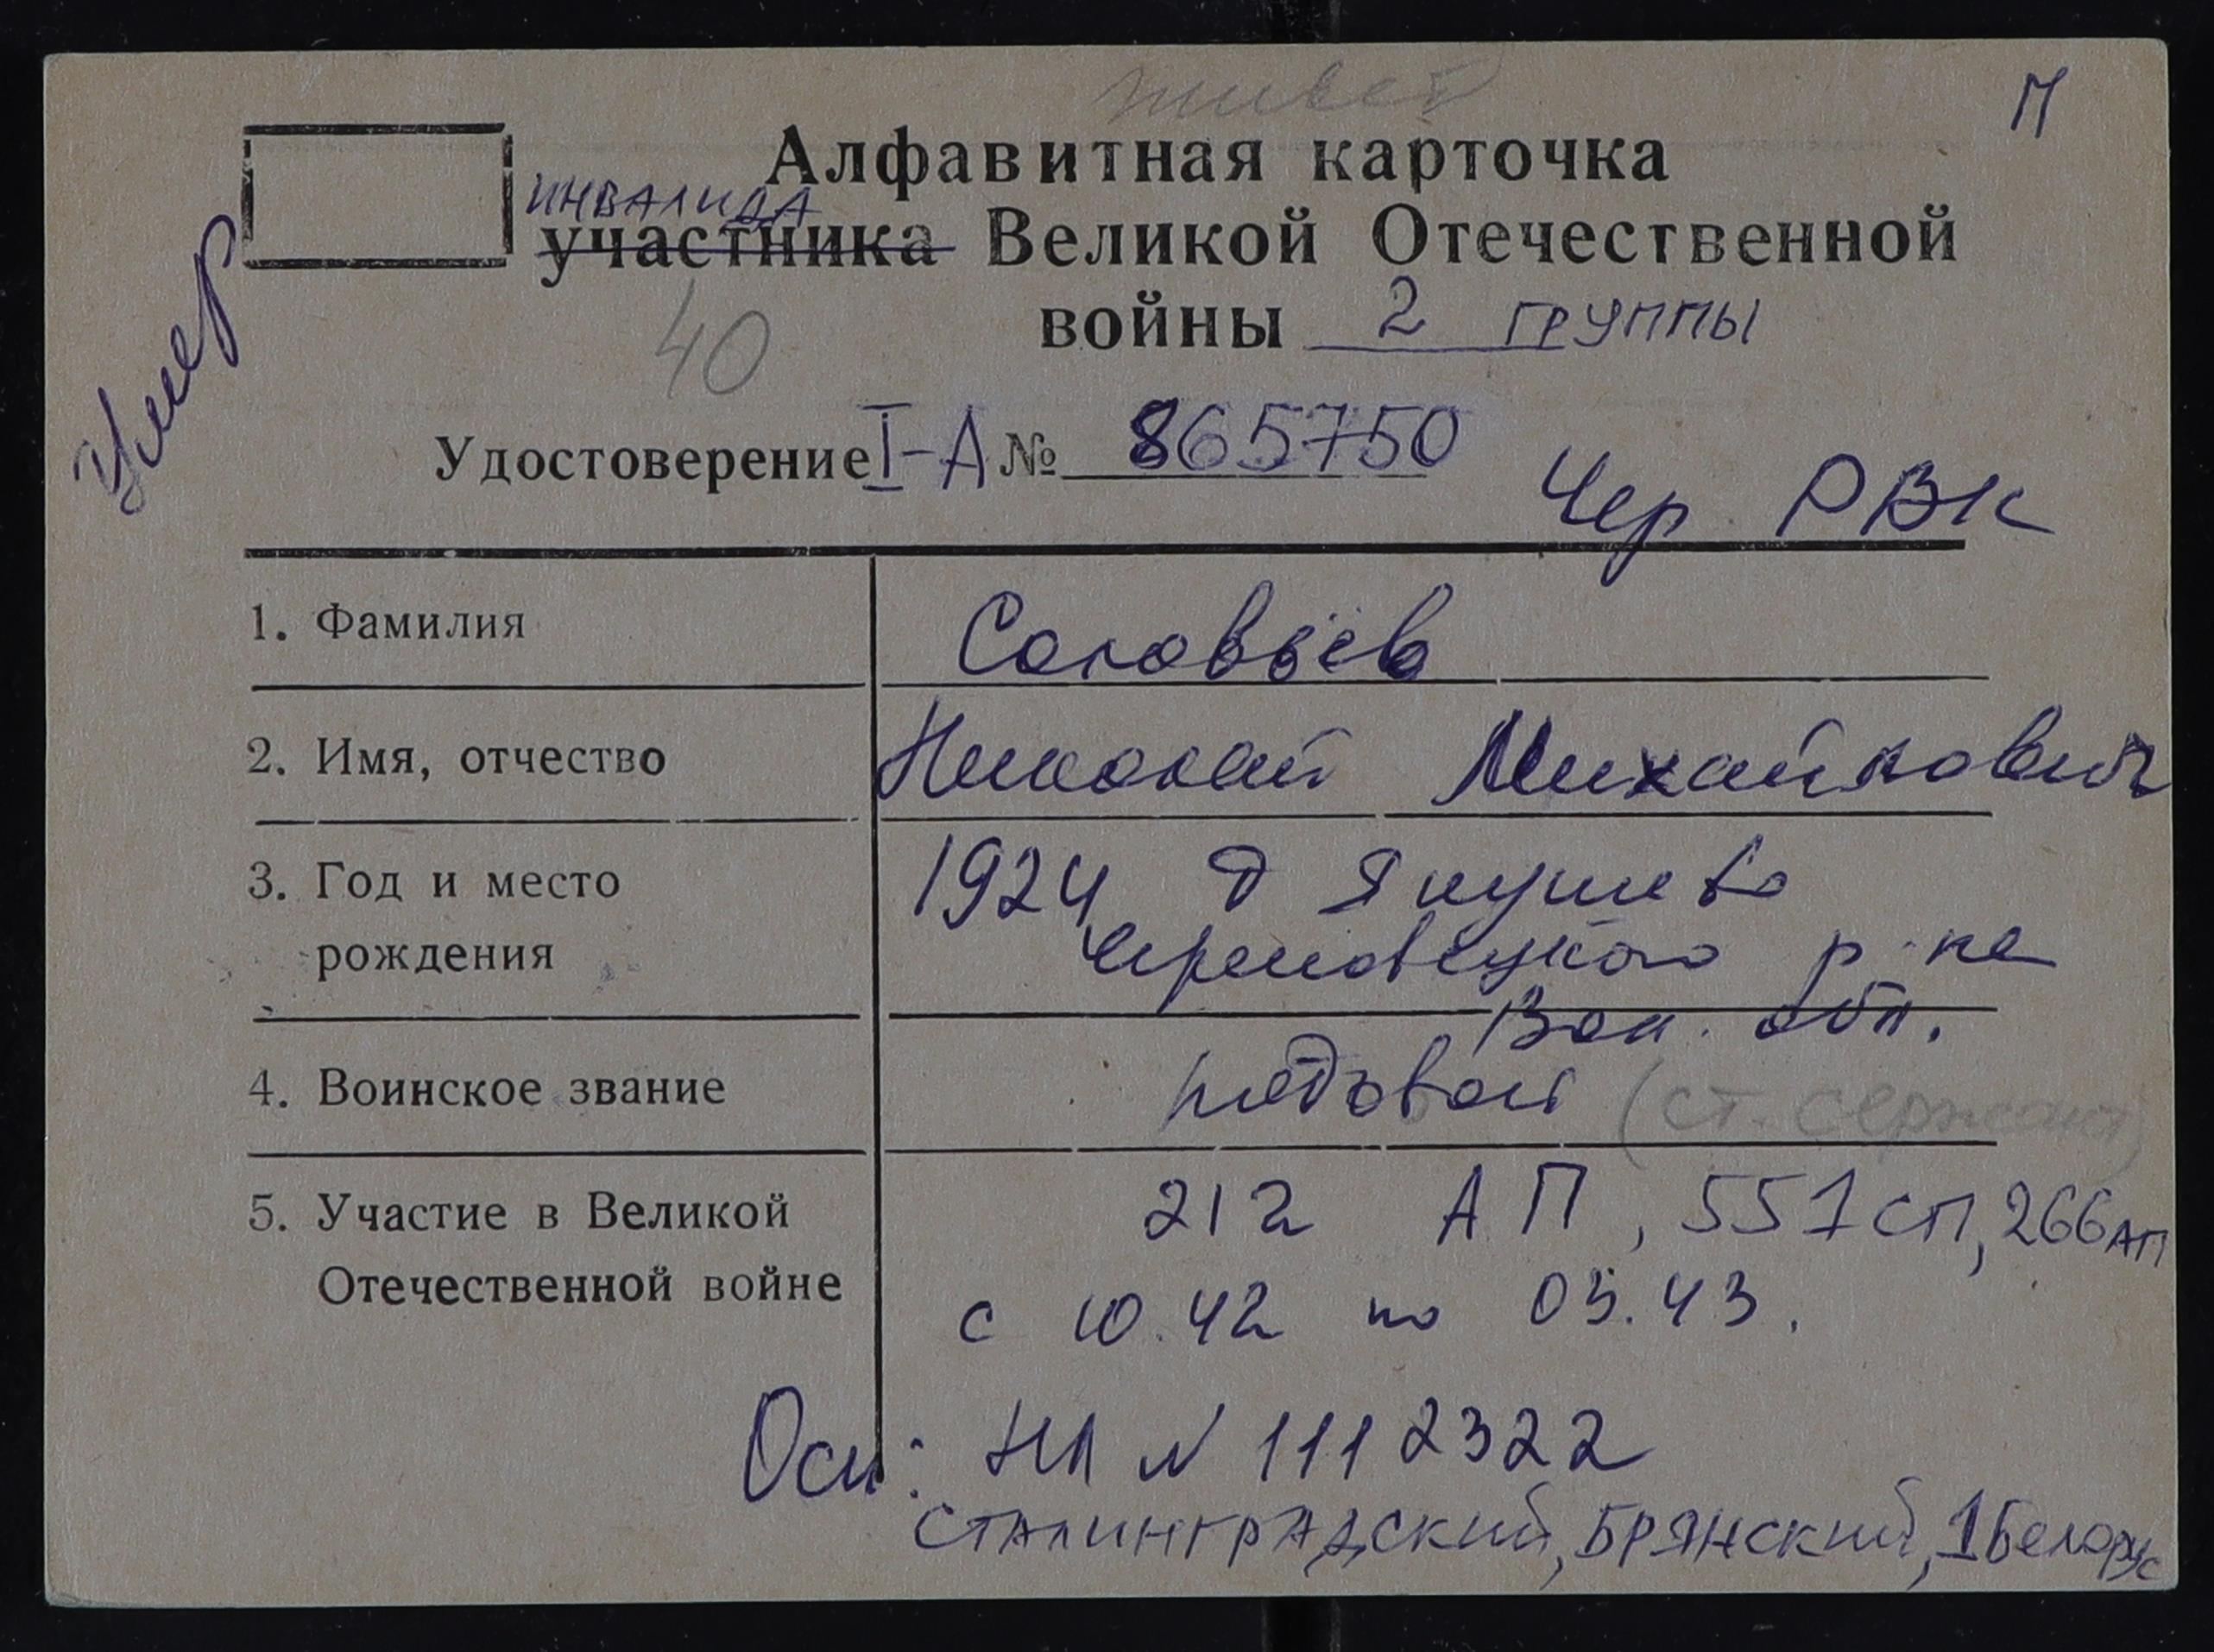 живет
П
Алфавитная карточка
ИНВАЛИДА
участника Великой Отечественной
войны 2 ГРУППЫ
Умер
40
Удостоверение I-А № 865750
Чер РВК
1. Фамилия Соловьёв
2. Имя, отчество Николай Михайлович
3. Год и место 1924 д Якушево
рождения Череповецкого р-на
Вол. обл.
4. Воинское звание рядовой (ст. сержант)
5. Участие в Великой 212 АП, 551 СП, 266 АП
Отечественной войне с 10.42 по 05.43.
Осн: НЛ N 1112322
СТАЛИНГРАДСКИЙ, БРЯНСКИЙ, 1 Белорус